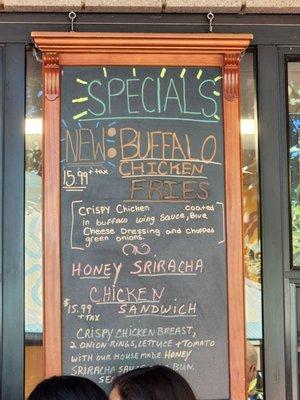 SPECIALS
NEW: BUFFALO
CHICKEN
15.99 + tax FRIES
Crispy Chicken coated
in buffalo wing sauce, Blue
Cheese Dressing and chopped
green onions.
HONEY SRIRACHA
CHICKEN
$15.99 SANDWICH
+ TAX
CRISPY CHICKEN BREAST,
2 ONION RINGS, LETTUCE + TOMATO
WITH OUR HOUSE MADE HONEY
SRIRACHA SAUCE ON A BUN.